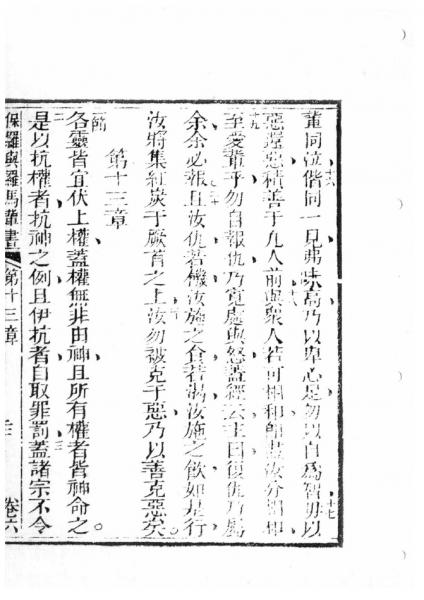 輩同泣偕同一見弗味高乃以卑心是勿以自為智毋以
惡還惡積善于凡人前與眾人若可相和即盡汝分相和
至愛輩乎勿自報仇乃寬處與怒蓋經云主曰復仇乃屬
余余必報且汝仇若機汝施之食若渴汝施之飲如是行
汝將集紅炭于厥首之上汝勿被克于惡乃以善克惡矣
第十三章
各靈皆宜伏上權蓋權無非由神且所有權者皆神命之
是以抗權者抗神之例且伊抗者自取罪罰蓋諸宗不令
保羅與羅馬輩書 第十三章 卷六